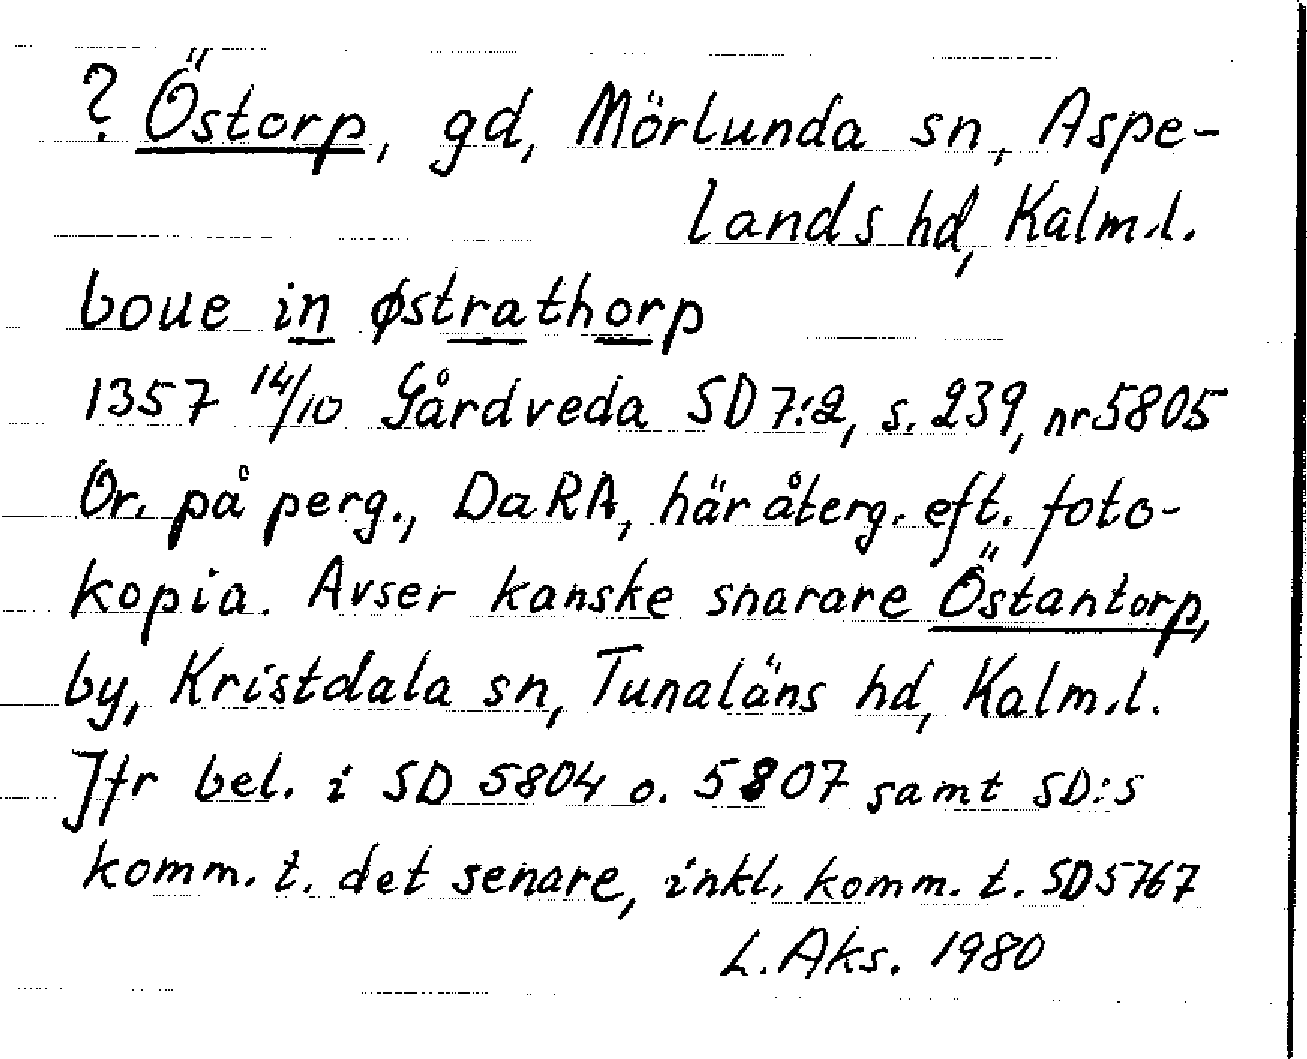 ? Östorp, gd, Mörlunda sn, Aspe-
lands hd, Kalm.l.
boue in østrathorp
1357 14/10 Gårdveda SD 7:2, s. 239, nr 5805
Or. på perg., DaRA, här återg. eft. foto-
kopia. Avser kanske snarare Östantorp,
by, Kristdala sn, Tunaläns hd, Kalm.l.
Jfr bel. i SD 5804 o. 5807 samt SD:s
komm. t. det senare, inkl. komm. t. SD 5767
L. Aks. 1980